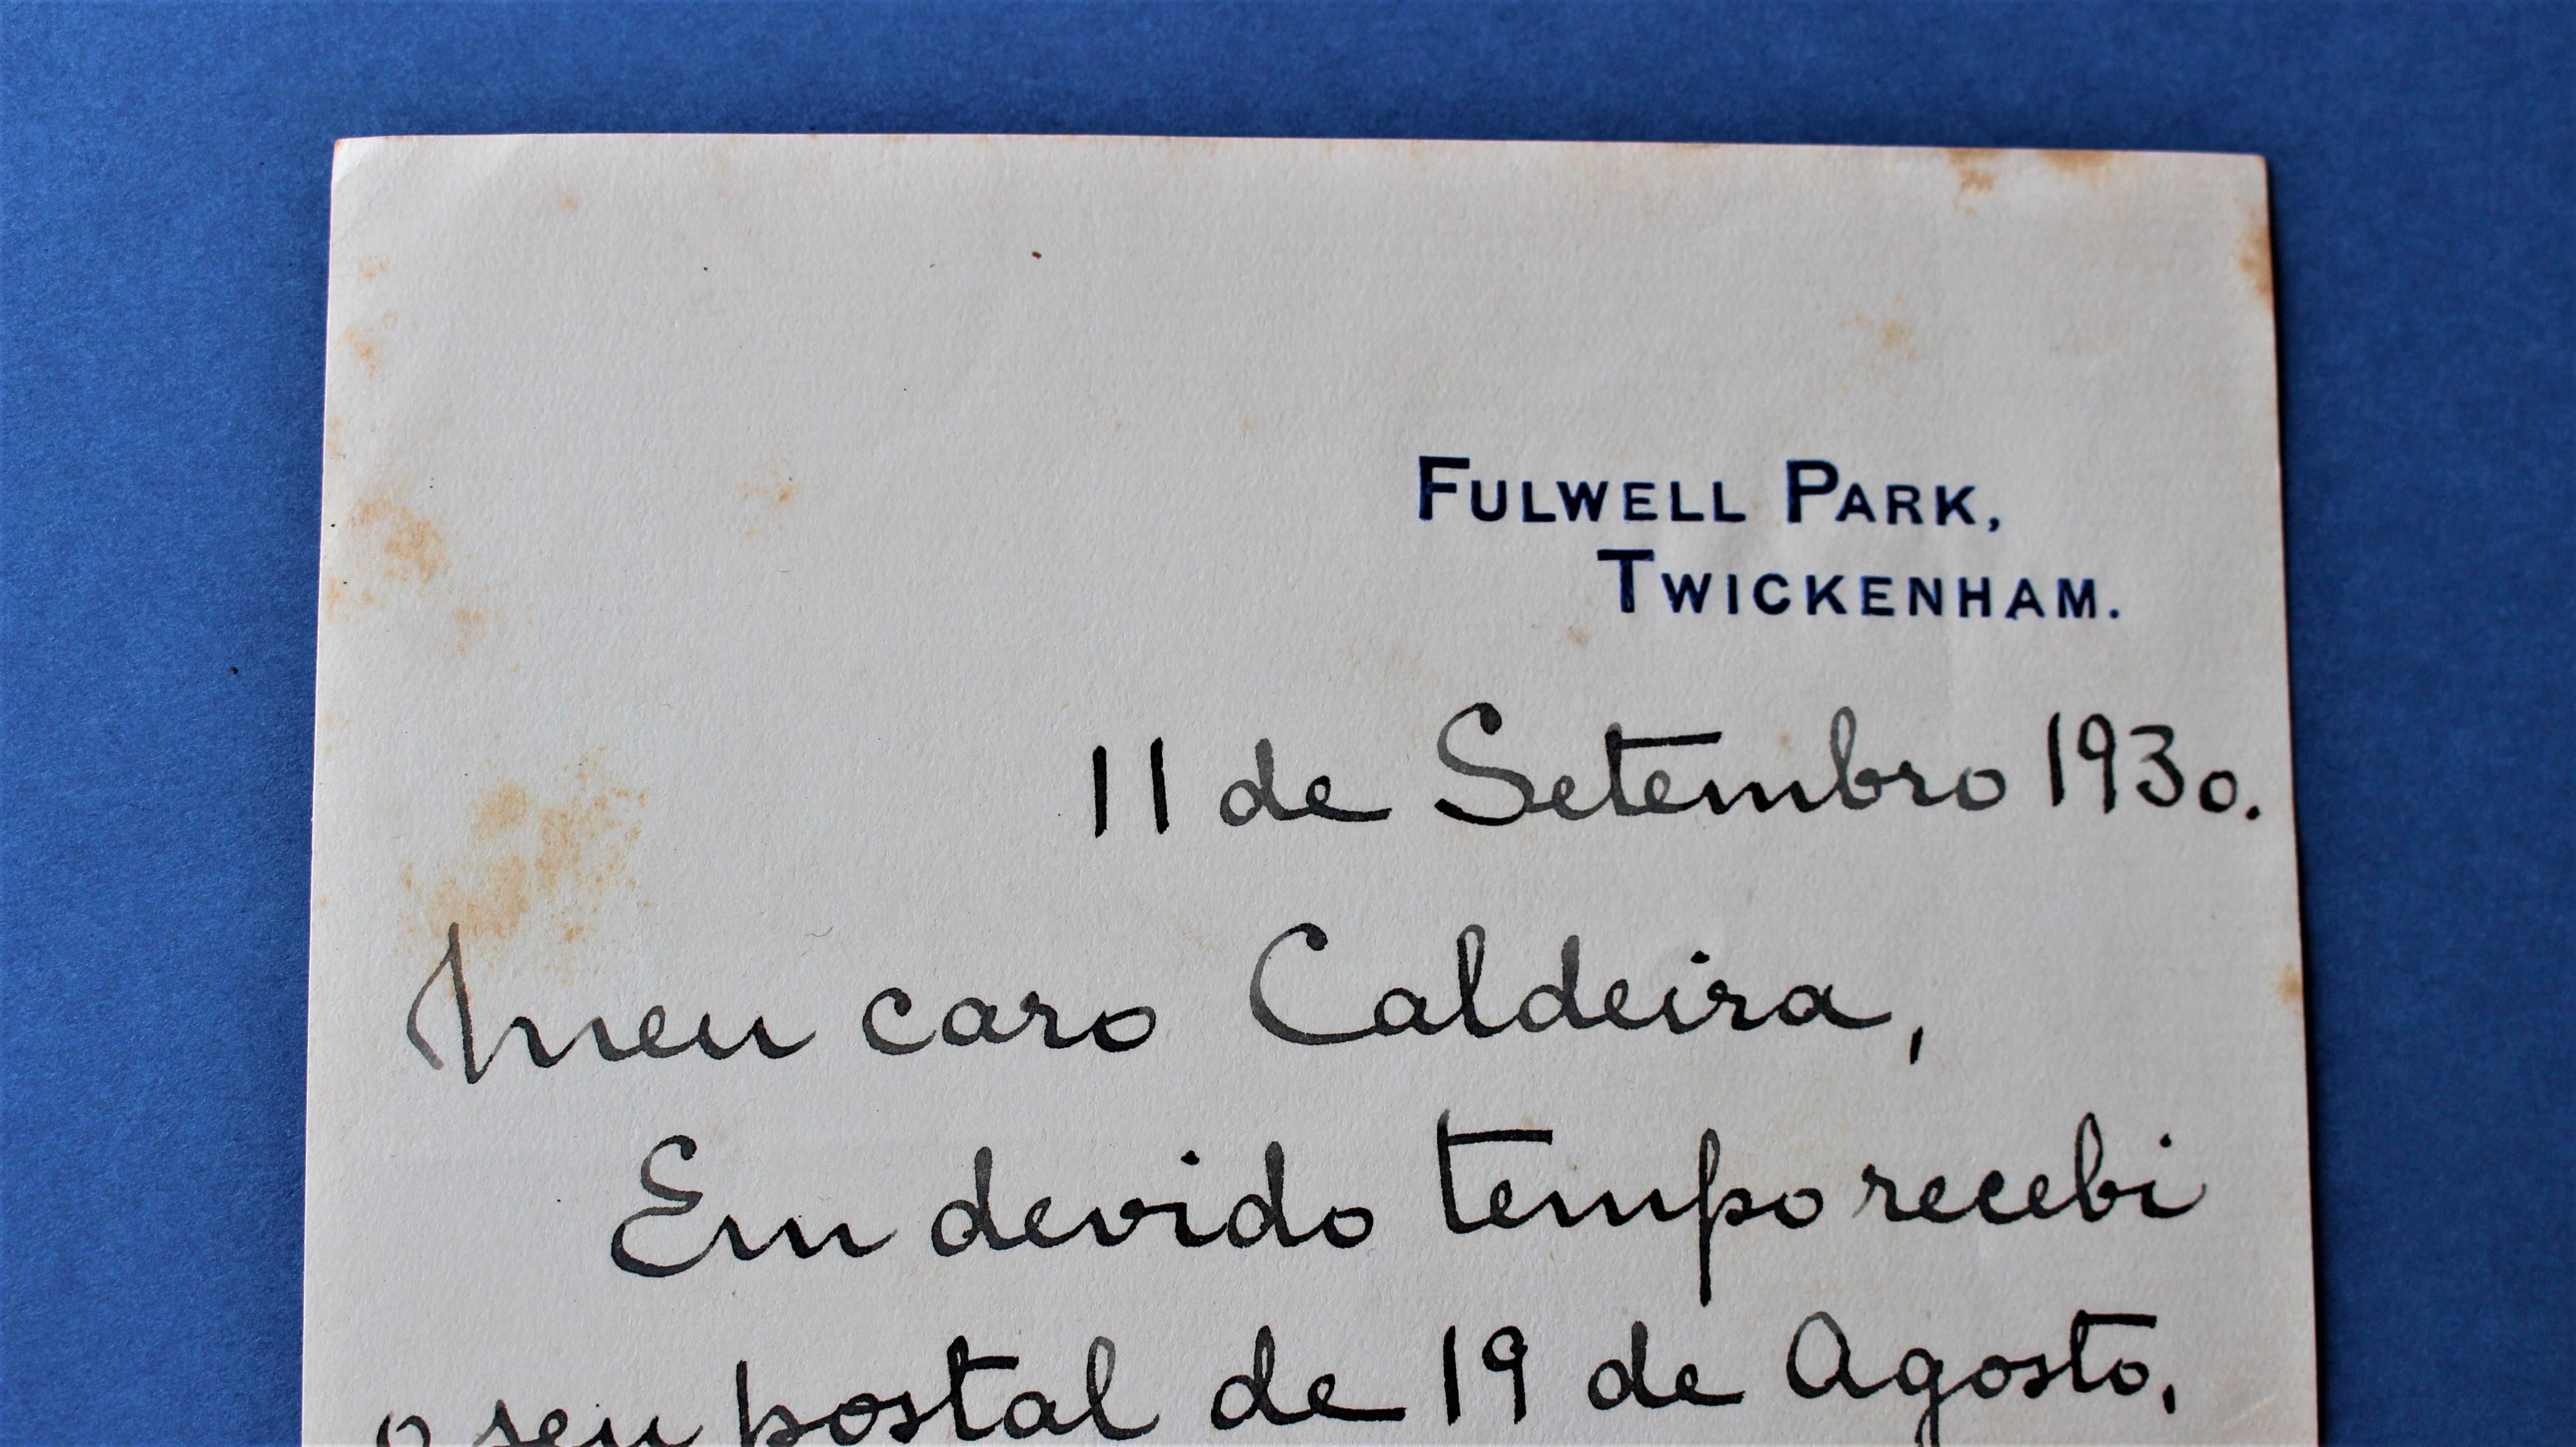 FULWELL PARK,
TWICKENHAM.
11 de Setembro 1930.
Meu caro Caldeira,
Em devido tempo recebi
o seu postal de 19 de Agosto,